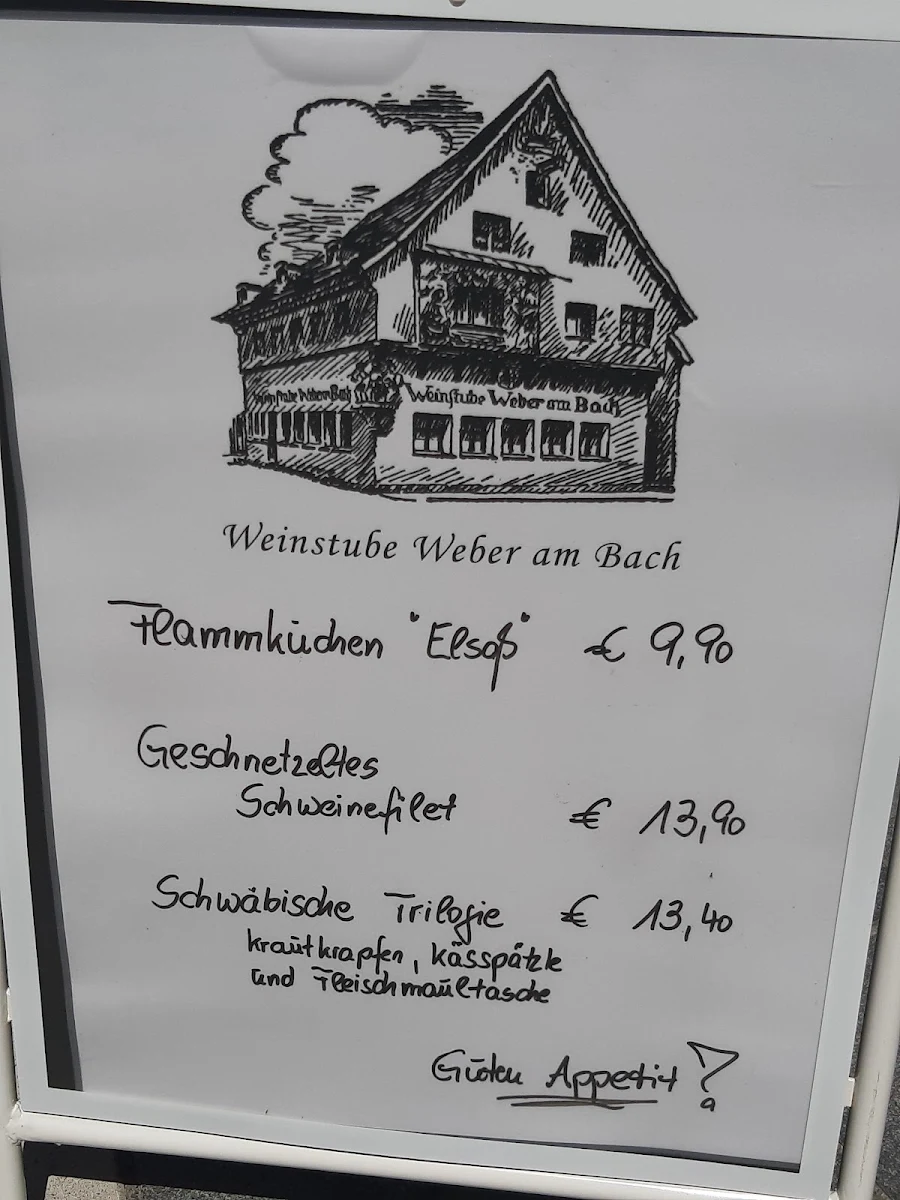 Weinstube Weber am Bach
Weinstube Weber am Bach
Weinstube Weber am Bach
Flammkuchen "Elsaß" € 9,90
Geschnetzeltes
Schweinefilet € 13,90
Schwäbische Trilogie € 13,40
Krautkrapfen, Kässpätzle
und Fleischmaultasche
Guten Appetit!